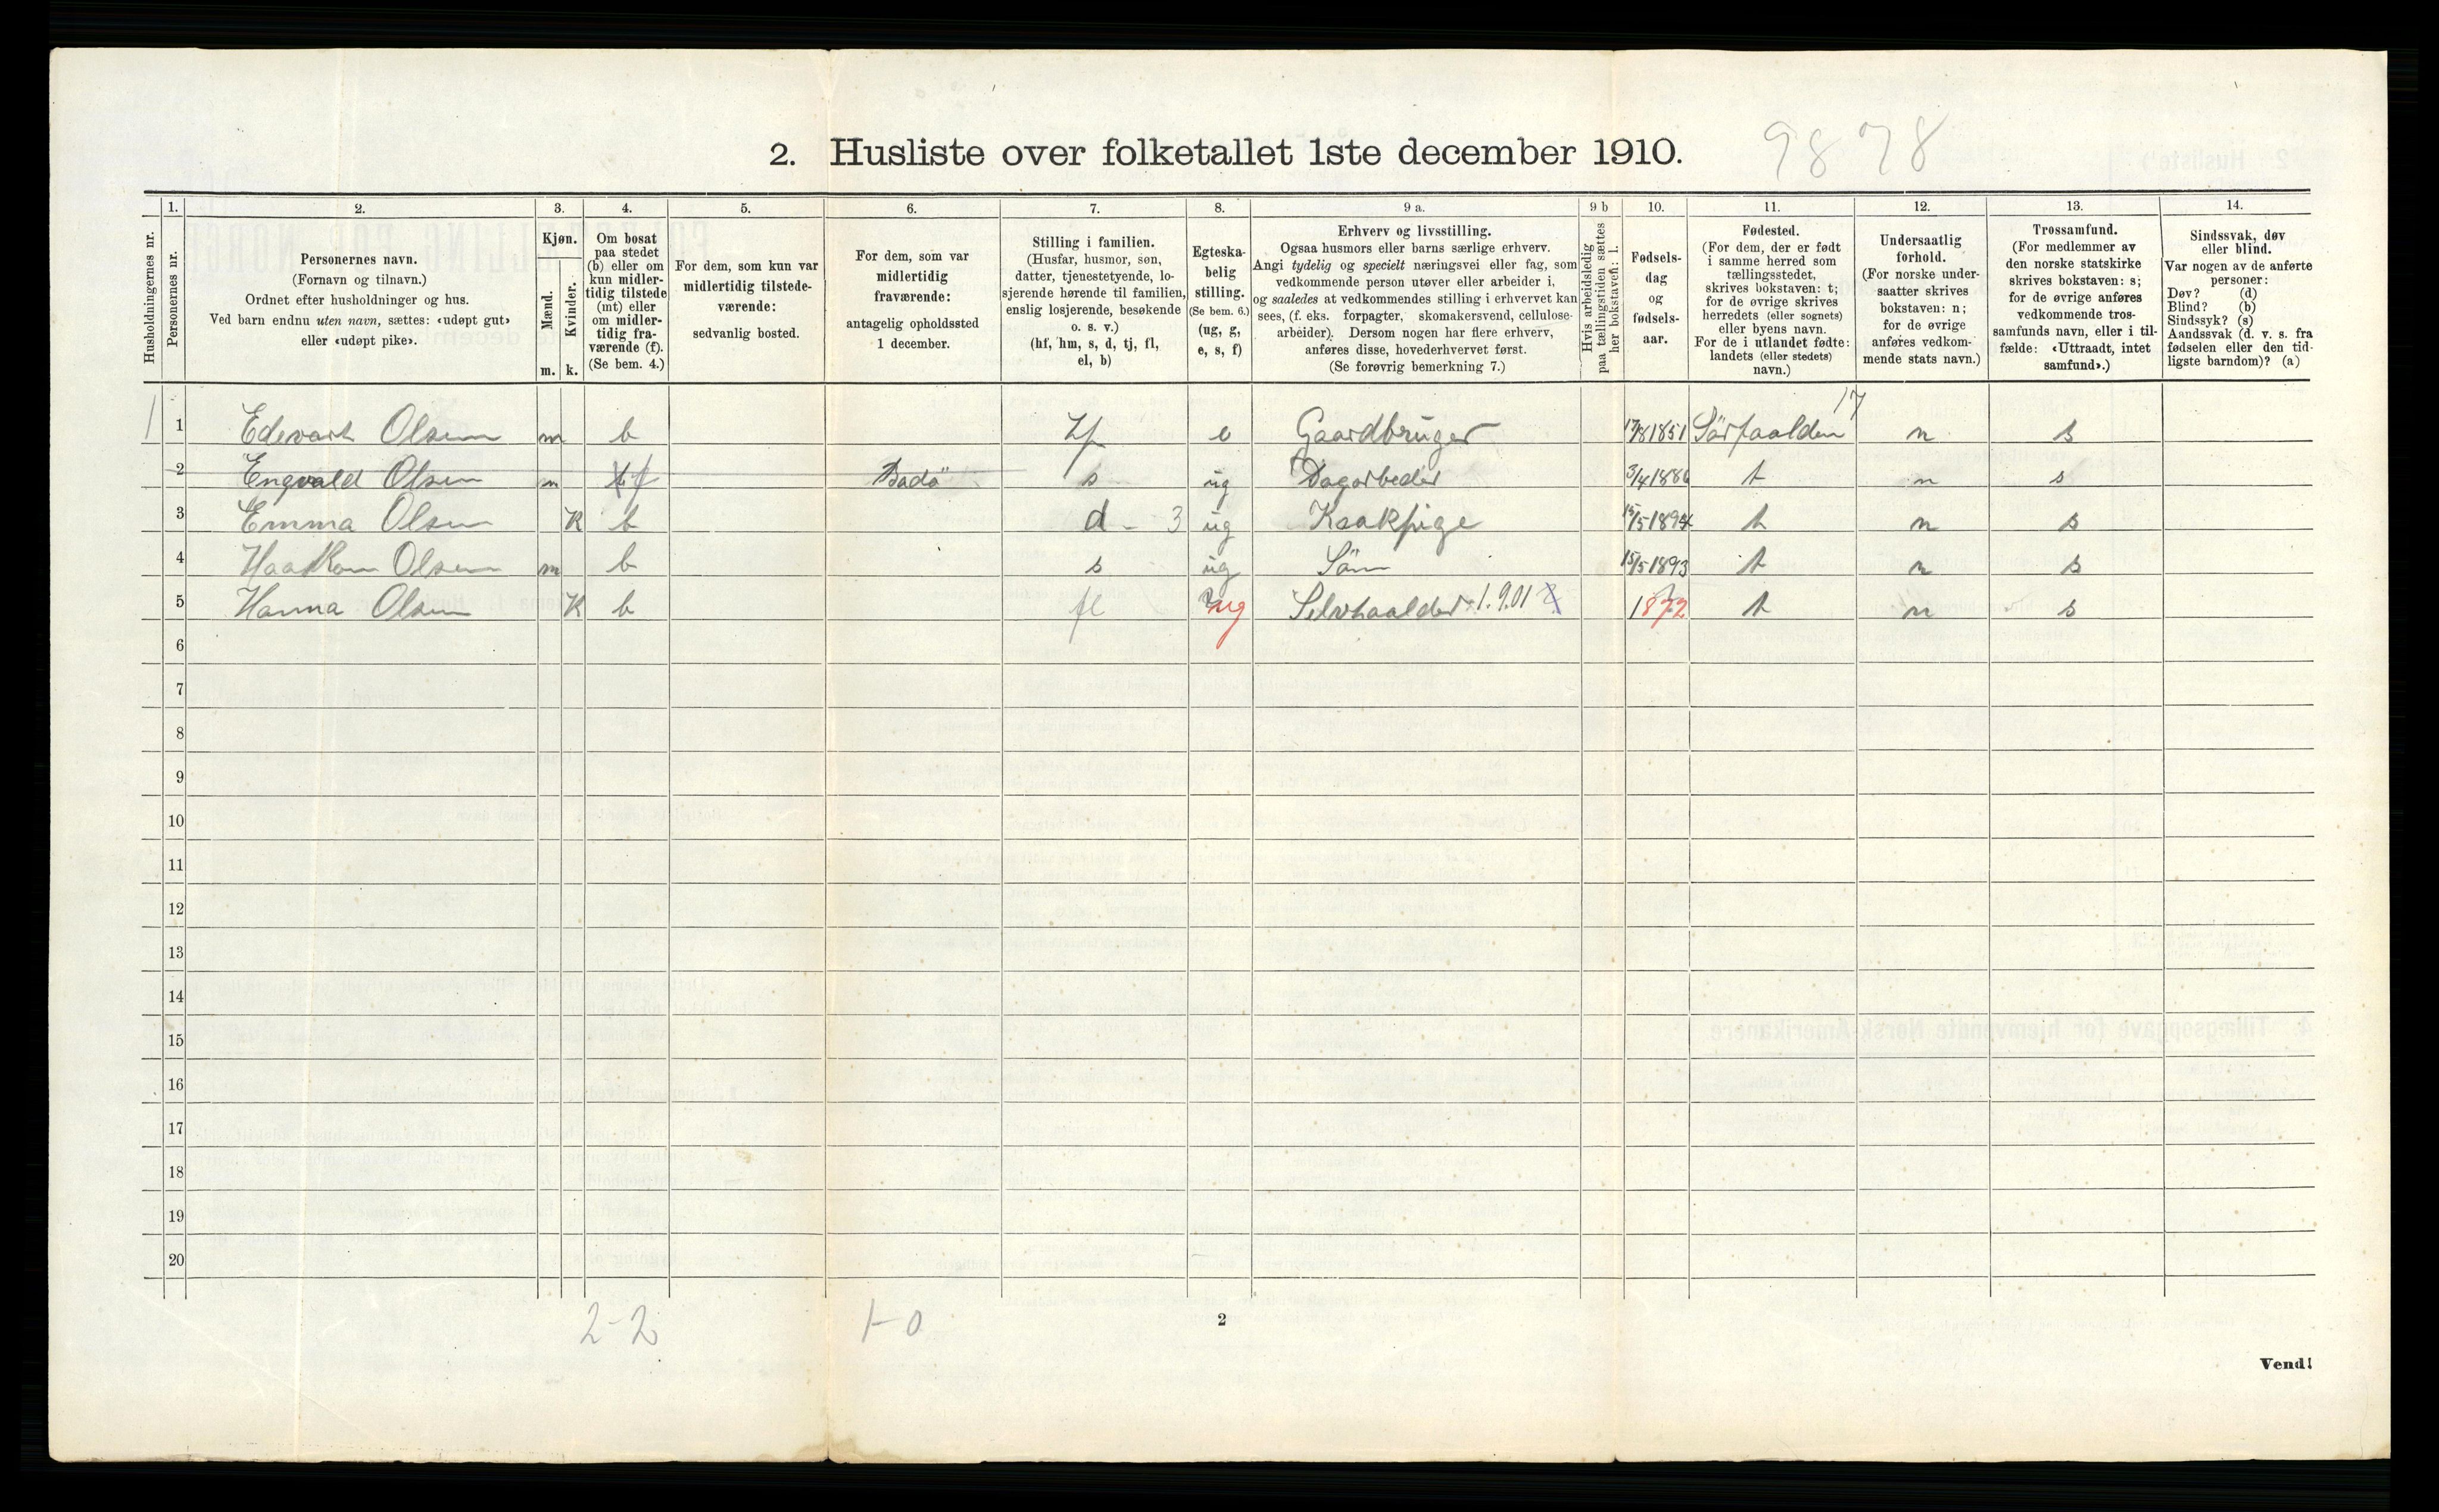 2. Husliste over folketallet 1ste december 1910.
9878
Husholdningernes nr.
1. Personernes nr.
2. Personernes navn.
(Fornavn og tilnavn.)
Ordnet efter husholdninger og hus.
Ved barn endnu uten navn, sættes: «udøpt gut»
eller «udøpt pike».
3. Kjøn.
Mænd. m.
Kvinder. k.
4. Om bosat
paa stedet
(b) eller om
kun midler-
tidig tilstede
(mt) eller
om midler-
tidig fra-
værende (f).
(Se bem. 4.)
5. For dem, som kun var
midlertidig tilstede-
værende:
sedvanlig bosted.
6. For dem, som var
midlertidig
fraværende:
antagelig opholdssted
1 december.
7. Stilling i familien.
(Husfar, husmor, søn,
datter, tjenestetyende, lo-
sjerende hørende til familien,
enslig losjerende, besøkende
o. s. v.)
(hf, hm, s, d, tj, fl,
el, b)
8. Egteska-
belig
stilling.
(Se bem. 6.)
(ug, g,
e, s, f)
9 a. Erhverv og livsstilling.
Ogsaa husmors eller barns særlige erhverv.
Angi tydelig og specielt næringsvei eller fag, som
vedkommende person utøver eller arbeider i,
og saaledes at vedkommendes stilling i erhvervet kan
sees, (f. eks. forpagter, skomakersvend, cellulose-
arbeider). Dersom nogen har flere erhverv,
anføres disse, hovederhvervet først.
(Se forøvrig bemerkning 7.)
9 b Hvis arbeidsledig
paa tællingstiden sættes
her bokstaven: l.
10. Fødsels-
dag
og
fødsels-
aar.
11. Fødested.
(For dem, der er født
i samme herred som
tællingsstedet,
skrives bokstaven: t;
for de øvrige skrives
herredets (eller sognets)
eller byens navn.
For de i utlandet fødte:
landets (eller stedets)
navn.)
12. Undersaatlig
forhold.
(For norske under-
saatter skrives
bokstaven: n;
for de øvrige
anføres vedkom-
mende stats navn.)
13. Trossamfund.
(For medlemmer av
den norske statskirke
skrives bokstaven: s;
for de øvrige anføres
vedkommende tros-
samfunds navn, eller i til-
fælde: «Uttraadt, intet
samfund».)
14. Sindssvak, døv
eller blind.
Var nogen av de anførte
personer:
Døv? (d)
Blind? (b)
Sindssyk? (s)
Aandssvak (d. v. s. fra
fødselen eller den tid-
ligste barndom)? (a)
17
1 1 Edevart Olsen m b hf e Gaardbruger 17/8 1851 Sörfaalden n s
2 Engvald Olsen m f Bodö s ug Dagarbeder 3/4 1886 t n s
3 Emma Olsen K b d - 3 ug Kaakpige 15/5 1894 t n s
4 Haakon Olsen m b s ug Sön 15/5 1893 t n s
5 Hanna Olsen K b fl ug Selvhaalder 1.9.01 1872 t n s
6
7
8
9
10
11
12
13
14
15
16
17
18
19
20
2-2
1-0
2
Vend!